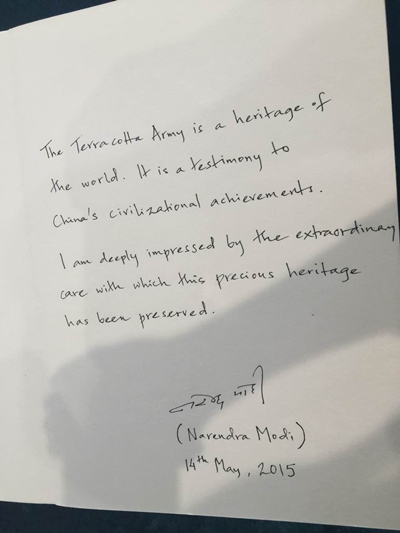 The Terracotta Army is a heritage of
the world. It is a testimony to
China's civilizational achievements.
I am deeply impressed by the extraordinary
care with which this precious heritage
has been preserved.
नरेन्द्र मोदी
(Narendra Modi)
14th May, 2015